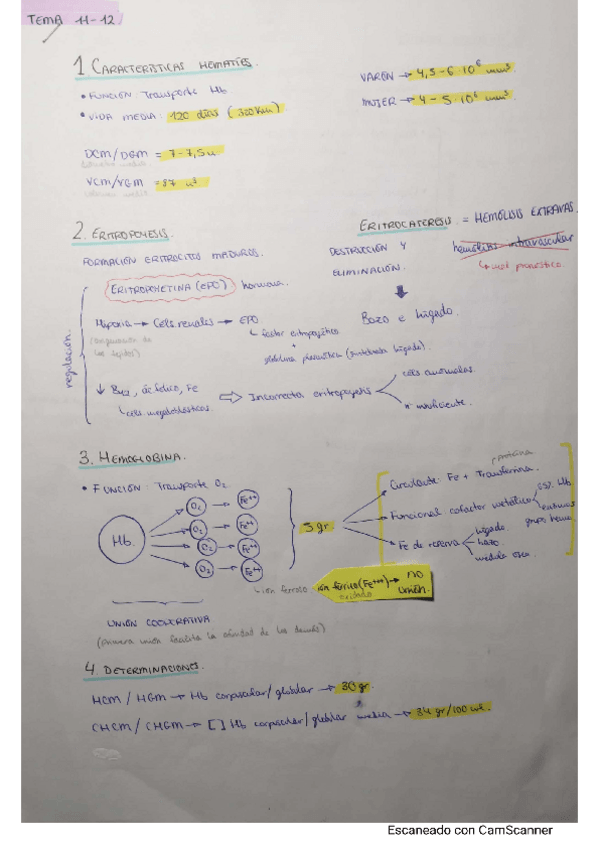 TEMA 11-12
1 CARACTERÍSTICAS HEMATÍES.
• FUNCIÓN: Transporte Hb
• VIDA MEDIA: 120 días (300Km)
VARÓN → 4,5-6·10⁶ mm³
MUJER → 4-5·10⁶ mm³
DCM/DGM = 7-7,5u.
VCM/VGM = 87 u³
2. ERITROPOYESIS.
FORMACIÓN ERITROCITOS MADUROS.
ERITROPOYETINA (EPO) hormona.
Hipoxia → Cels renales → EPO
(oxigenación de los tejidos)
↳ factor eritropoyético
+
globulina plasmática (sintetizada hígado).
regulación
↓ B12, ác. fólico, Fe ⇒ Incorrecta eritropoyesis
cels anómalas
nº insuficiente.
↳ cels megaloblásticas.
ERITROCATERESIS = HEMÓLISIS EXTRAVAS.
hemólisis intravascular
↳ mal pronóstico.
DESTRUCCIÓN Y
ELIMINACIÓN.
Bazo e hígado.
3. HEMOGLOBINA.
• FUNCIÓN: Transporte O₂
Hb.
O₂ → Fe⁺⁺
O₂ → Fe⁺⁺
O₂ → Fe⁺⁺
O₂ → Fe⁺⁺
5 gr
proteína
Circulante: Fe + Transferrina.
Funcional cofactor metálico
Hb
enzimas
grupo hemo
Fe de reserva
hígado
bazo
médula ósea
ion ferroso
ion férrico (Fe⁺⁺⁺) → no unión.
oxidado
UNIÓN COOPERATIVA
(primera unión facilita la afinidad de las demás)
4 DETERMINACIONES.
HCM / HGM → Hb corpuscular/globular → 30 gr.
CHCM / CHGM → [ ] Hb corpuscular/globular media → 34 gr/100 ml.
Escaneado con CamScanner